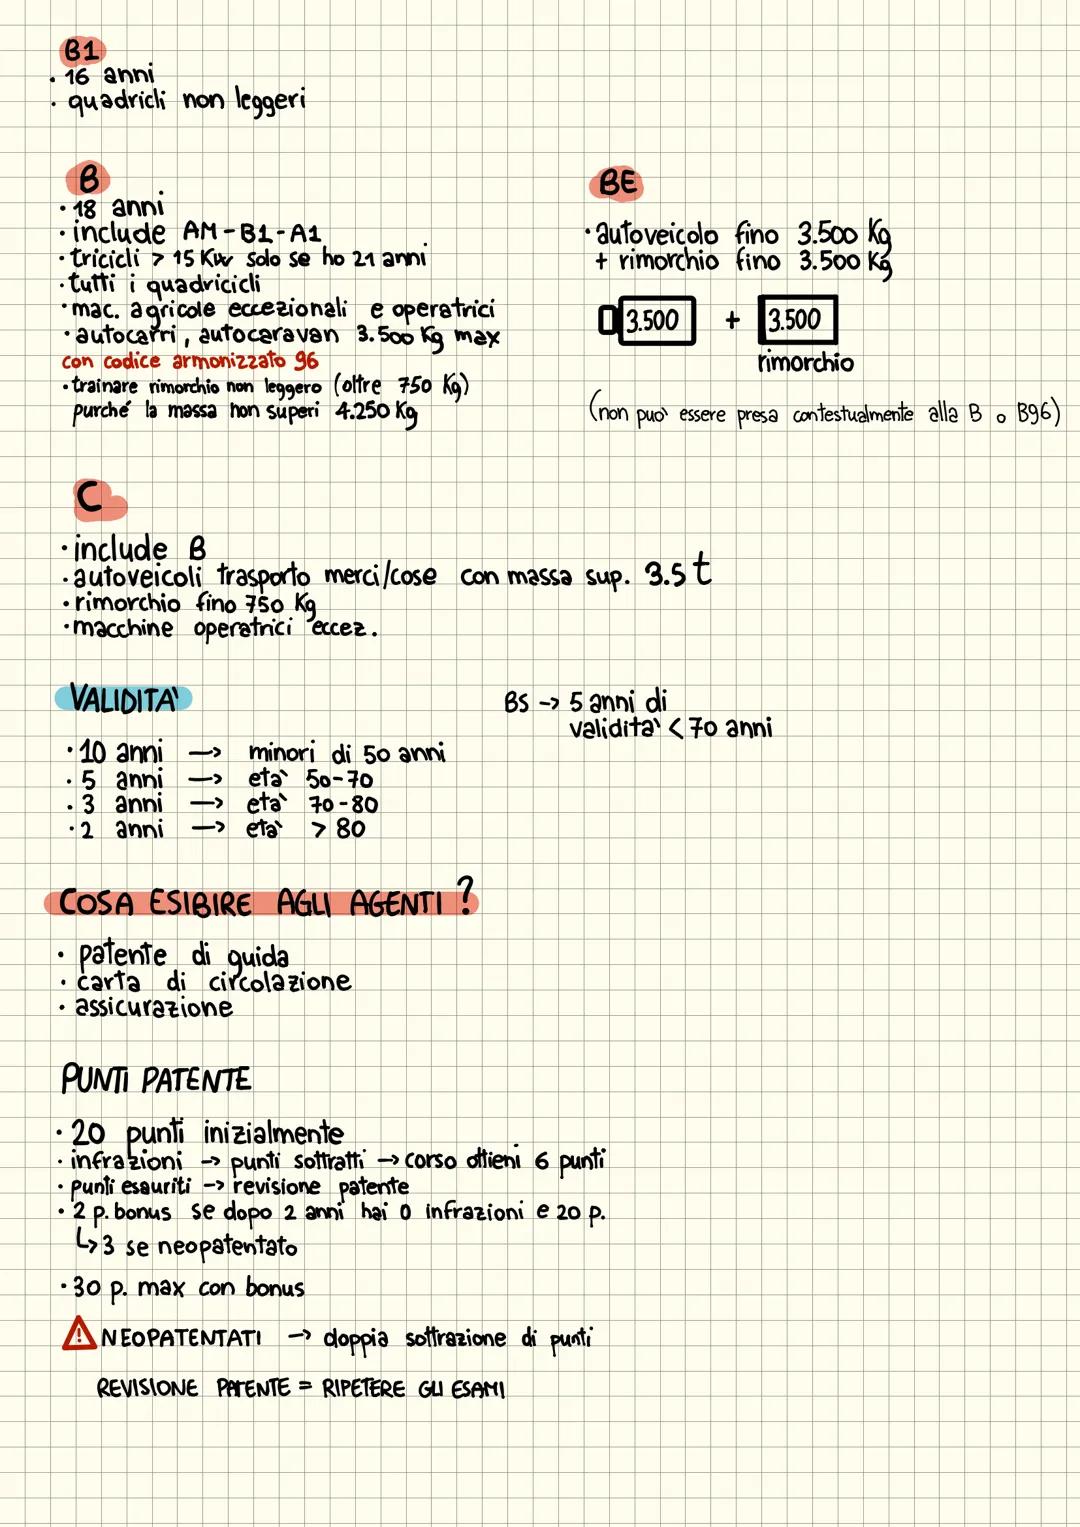 B1
· 16 anni
· quadricli non leggeri
B
· 18 anni
· include AM-B1-A1
· tricicli > 15 Kw solo se ho 21 anni
· tutti i quadricicli
· mac. agricole eccezionali e operatrici
· autocarri, autocaravan 3.500 Kg max
con codice armonizzato 96
· trainare rimorchio non leggero (oltre 750 Kg)
purché la massa non superi 4.250 Kg
BE
· autoveicolo fino 3.500 Kg
+ rimorchio fino 3.500 Kg
3.500 + 3.500
rimorchio
(non può essere presa contestualmente alla B o B96)
C
· include B
· autoveicoli trasporto merci/cose con massa sup. 3.5 t
· rimorchio fino 750 Kg
· macchine operatrici eccez.
VALIDITA'
· 10 anni —> minori di 50 anni
· 5 anni —> età 50-70
· 3 anni —> età 70-80
· 2 anni —> età > 80
BS -> 5 anni di
validità < 70 anni
COSA ESIBIRE AGLI AGENTI ?
· patente di guida
· carta di circolazione
· assicurazione
PUNTI PATENTE
· 20 punti inizialmente
· infrazioni -> punti sottratti -> corso ottieni 6 punti
· punti esauriti -> revisione patente
· 2 p. bonus se dopo 2 anni hai 0 infrazioni e 20 p.
↳ 3 se neopatentato
· 30 p. max con bonus
⚠ NEOPATENTATI -> doppia sottrazione di punti
REVISIONE PATENTE = RIPETERE GLI ESAMI